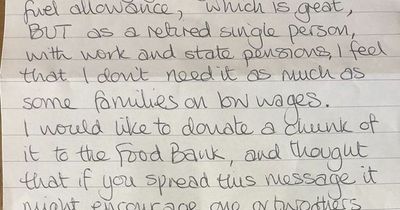 fuel allowance, which is great,
BUT as a retired single person,
with work and state pensions, I feel
that I don't need it as much as
some families on low wages.
I would like to donate a chunk of
it to the Food Bank, and thought
that if you spread this message it
might encourage one or two others